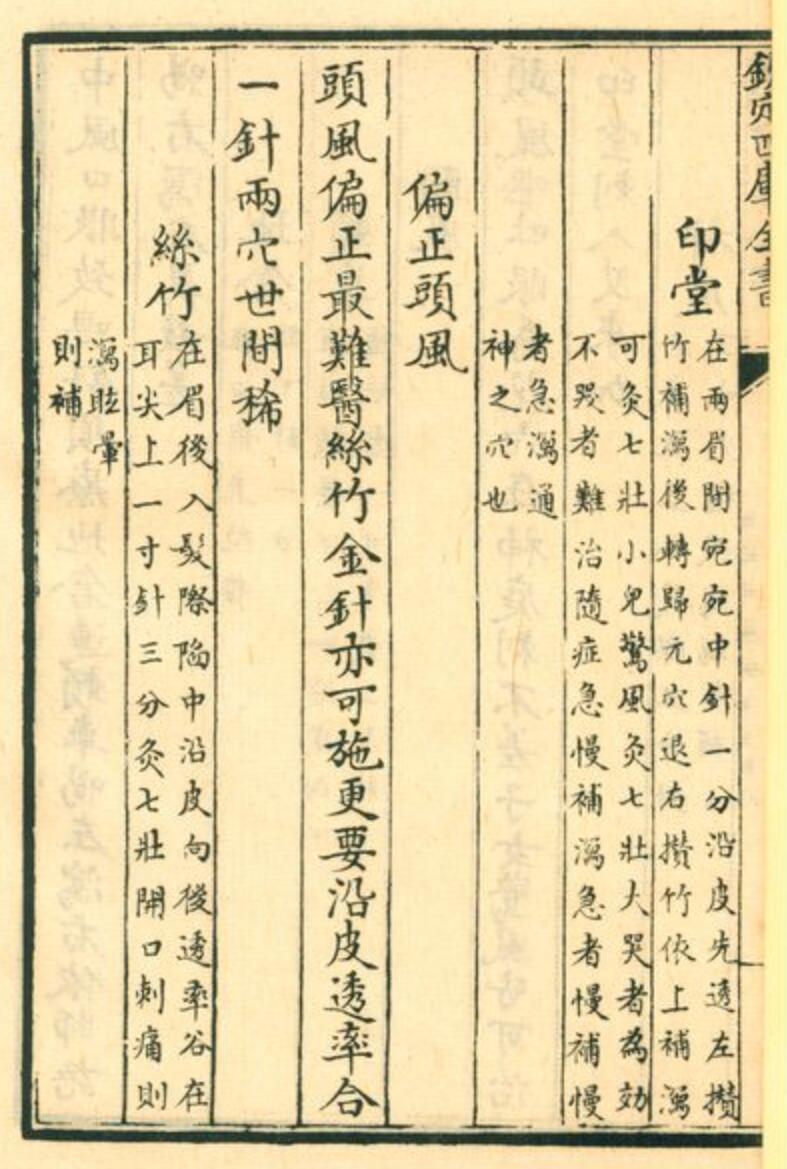 欽定四庫全書
印堂
在兩眉間宛宛中針一分沿皮先透左攢
竹補瀉後轉歸元穴退右攢竹依上補瀉
可灸七壯小兒驚風灸七壯大哭者為効
不哭者難治隨症急慢補瀉急者慢補慢
者急瀉通
神之穴也
偏正頭風
頭風偏正最難醫絲竹金針亦可施更要沿皮透率合
一針兩穴世間稀
絲竹
在眉後入髮際陥中沿皮向後透率谷在
耳尖上一寸針三分灸七壯開口刺痛則
瀉眩暈
則補